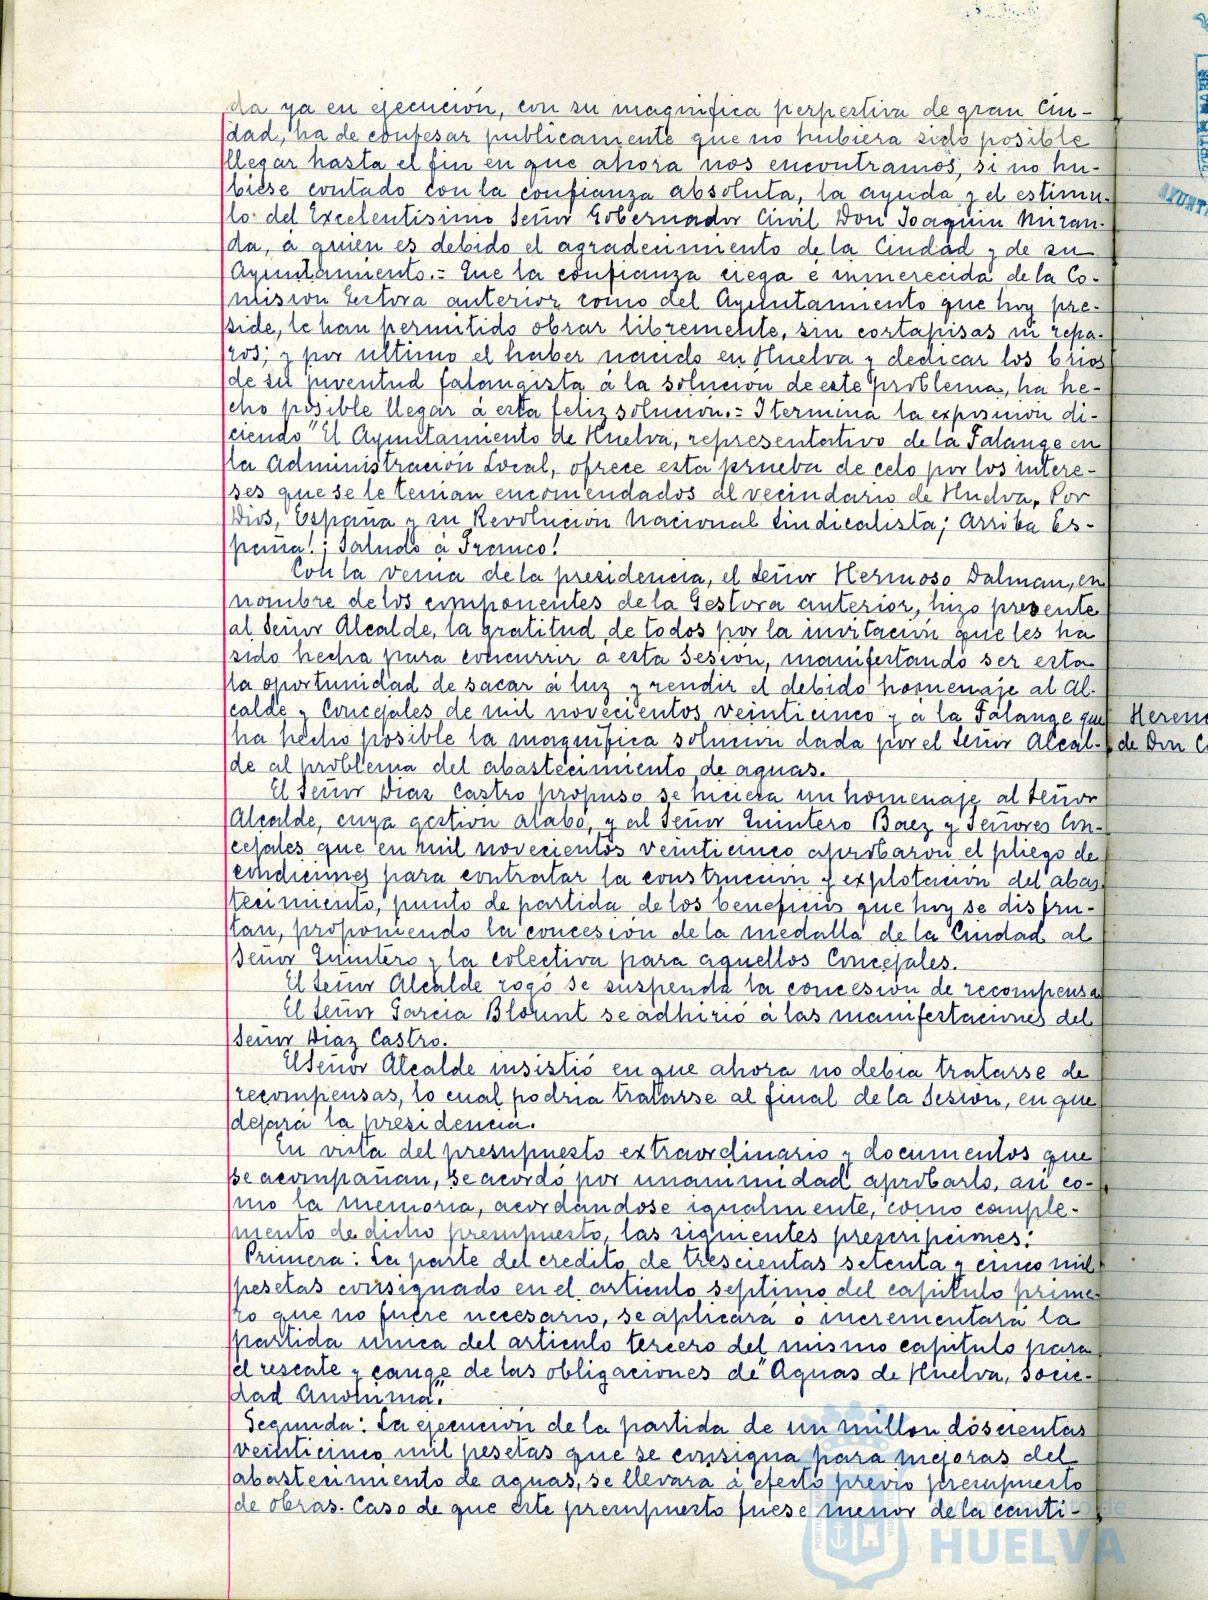 da ya en ejecución, con su magnifica perpertiva de gran Ciu-
dad, ha de confesar publicamente que no hubiera sido posible
llegar hasta el fin en que ahora nos encontramos, si no hu-
biese contado con la confianza absoluta, la ayuda y el estimu-
lo del Excelentisimo Señor Gobernador Civil Don Joaquin Miran-
da, á quien es debido el agradecimiento de la Ciudad y de su
Ayuntamiento.= Que la confianza ciega é inmerecida de la Co-
misión Gestora anterior como del Ayuntamiento que hoy pre-
side, le han permitido obrar libremente, sin cortapisas ni repa-
ros; y por ultimo el haber nacido en Huelva y dedicar los brios
de su juventud falangista á la solución de este problema, ha he-
cho posible llegar á esta feliz solución.= I termina la exposición di-
ciendo "El Ayuntamiento de Huelva, representativo de la Falange en
la Administración Local, ofrece esta prueba de celo por los intere-
ses que se le tenian encomendados al vecindario de Huelva, Por
Dios, España y su Revolución Nacional Sindicalista; Arriba Es-
paña!; Saludo á Franco!
Con la venia de la presidencia, el Señor Hermoso Dalman, en
nombre de los componentes de la Gestora anterior, hizo presente
al Señor Alcalde, la gratitud de todos por la invitación que les ha
sido hecha para concurrir á esta Sesión, manifestando ser esta
la oportunidad de sacar á luz y rendir el debido homenaje al Al-
calde y Concejales de mil novecientos veinticinco y á la Falange que
ha hecho posible la magnifica solución dada por el Señor Alcal-
de al problema del abastecimiento de aguas.
El Señor Diaz Castro propuso se hiciera un homenaje al Señor
Alcalde, cuya gestión alabó, y al Señor Quintero Baez y Señores Con-
cejales que en mil novecientos veinticinco aprobaron el pliego de
condiciones para contratar la construcción y explotación del abas
tecimiento, punto de partida de los beneficios que hoy se disfru-
tan, proponiendo la concesión de la medalla de la Ciudad al
Señor Quintero y la colectiva para aquellos Concejales.
El Señor Alcalde rogó se suspenda la concesión de recompensa
El Señor Garcia Blount se adhirió á las manifestaciones del
Señor Diaz Castro.
El Señor Alcalde insistió en que ahora no debia tratarse de
recompensas, lo cual podria tratarse al final de la Sesión, en que
dejará la presidencia.
En vista del presupuesto extraordinario y documentos que
se acompañan, se acordó por unanimidad aprobarlo, asi co-
mo la memoria, acordándose igualmente, como comple-
mento de dicho presupuesto, las siguientes prescripciones:
Primera: La parte del credito de trescientas setenta y cinco mil
pesetas consignado en el articulo septimo del capitulo prime-
ro que no fuere necesario, se aplicará ó incrementará la
partida unica del articulo tercero del mismo capitulo para
el rescate y cange de las obligaciones de "Aguas de Huelva, Socie-
dad Anónima".
Segunda: La ejecución de la partida de un millon doscientas
veinticinco mil pesetas que se consigna para mejoras del
abastecimiento de aguas, se llevará á efecto previo presupuesto
de obras. Caso de que este presupuesto fuese menor de la canti-
de Don
Ayuntamiento de
HUELVA